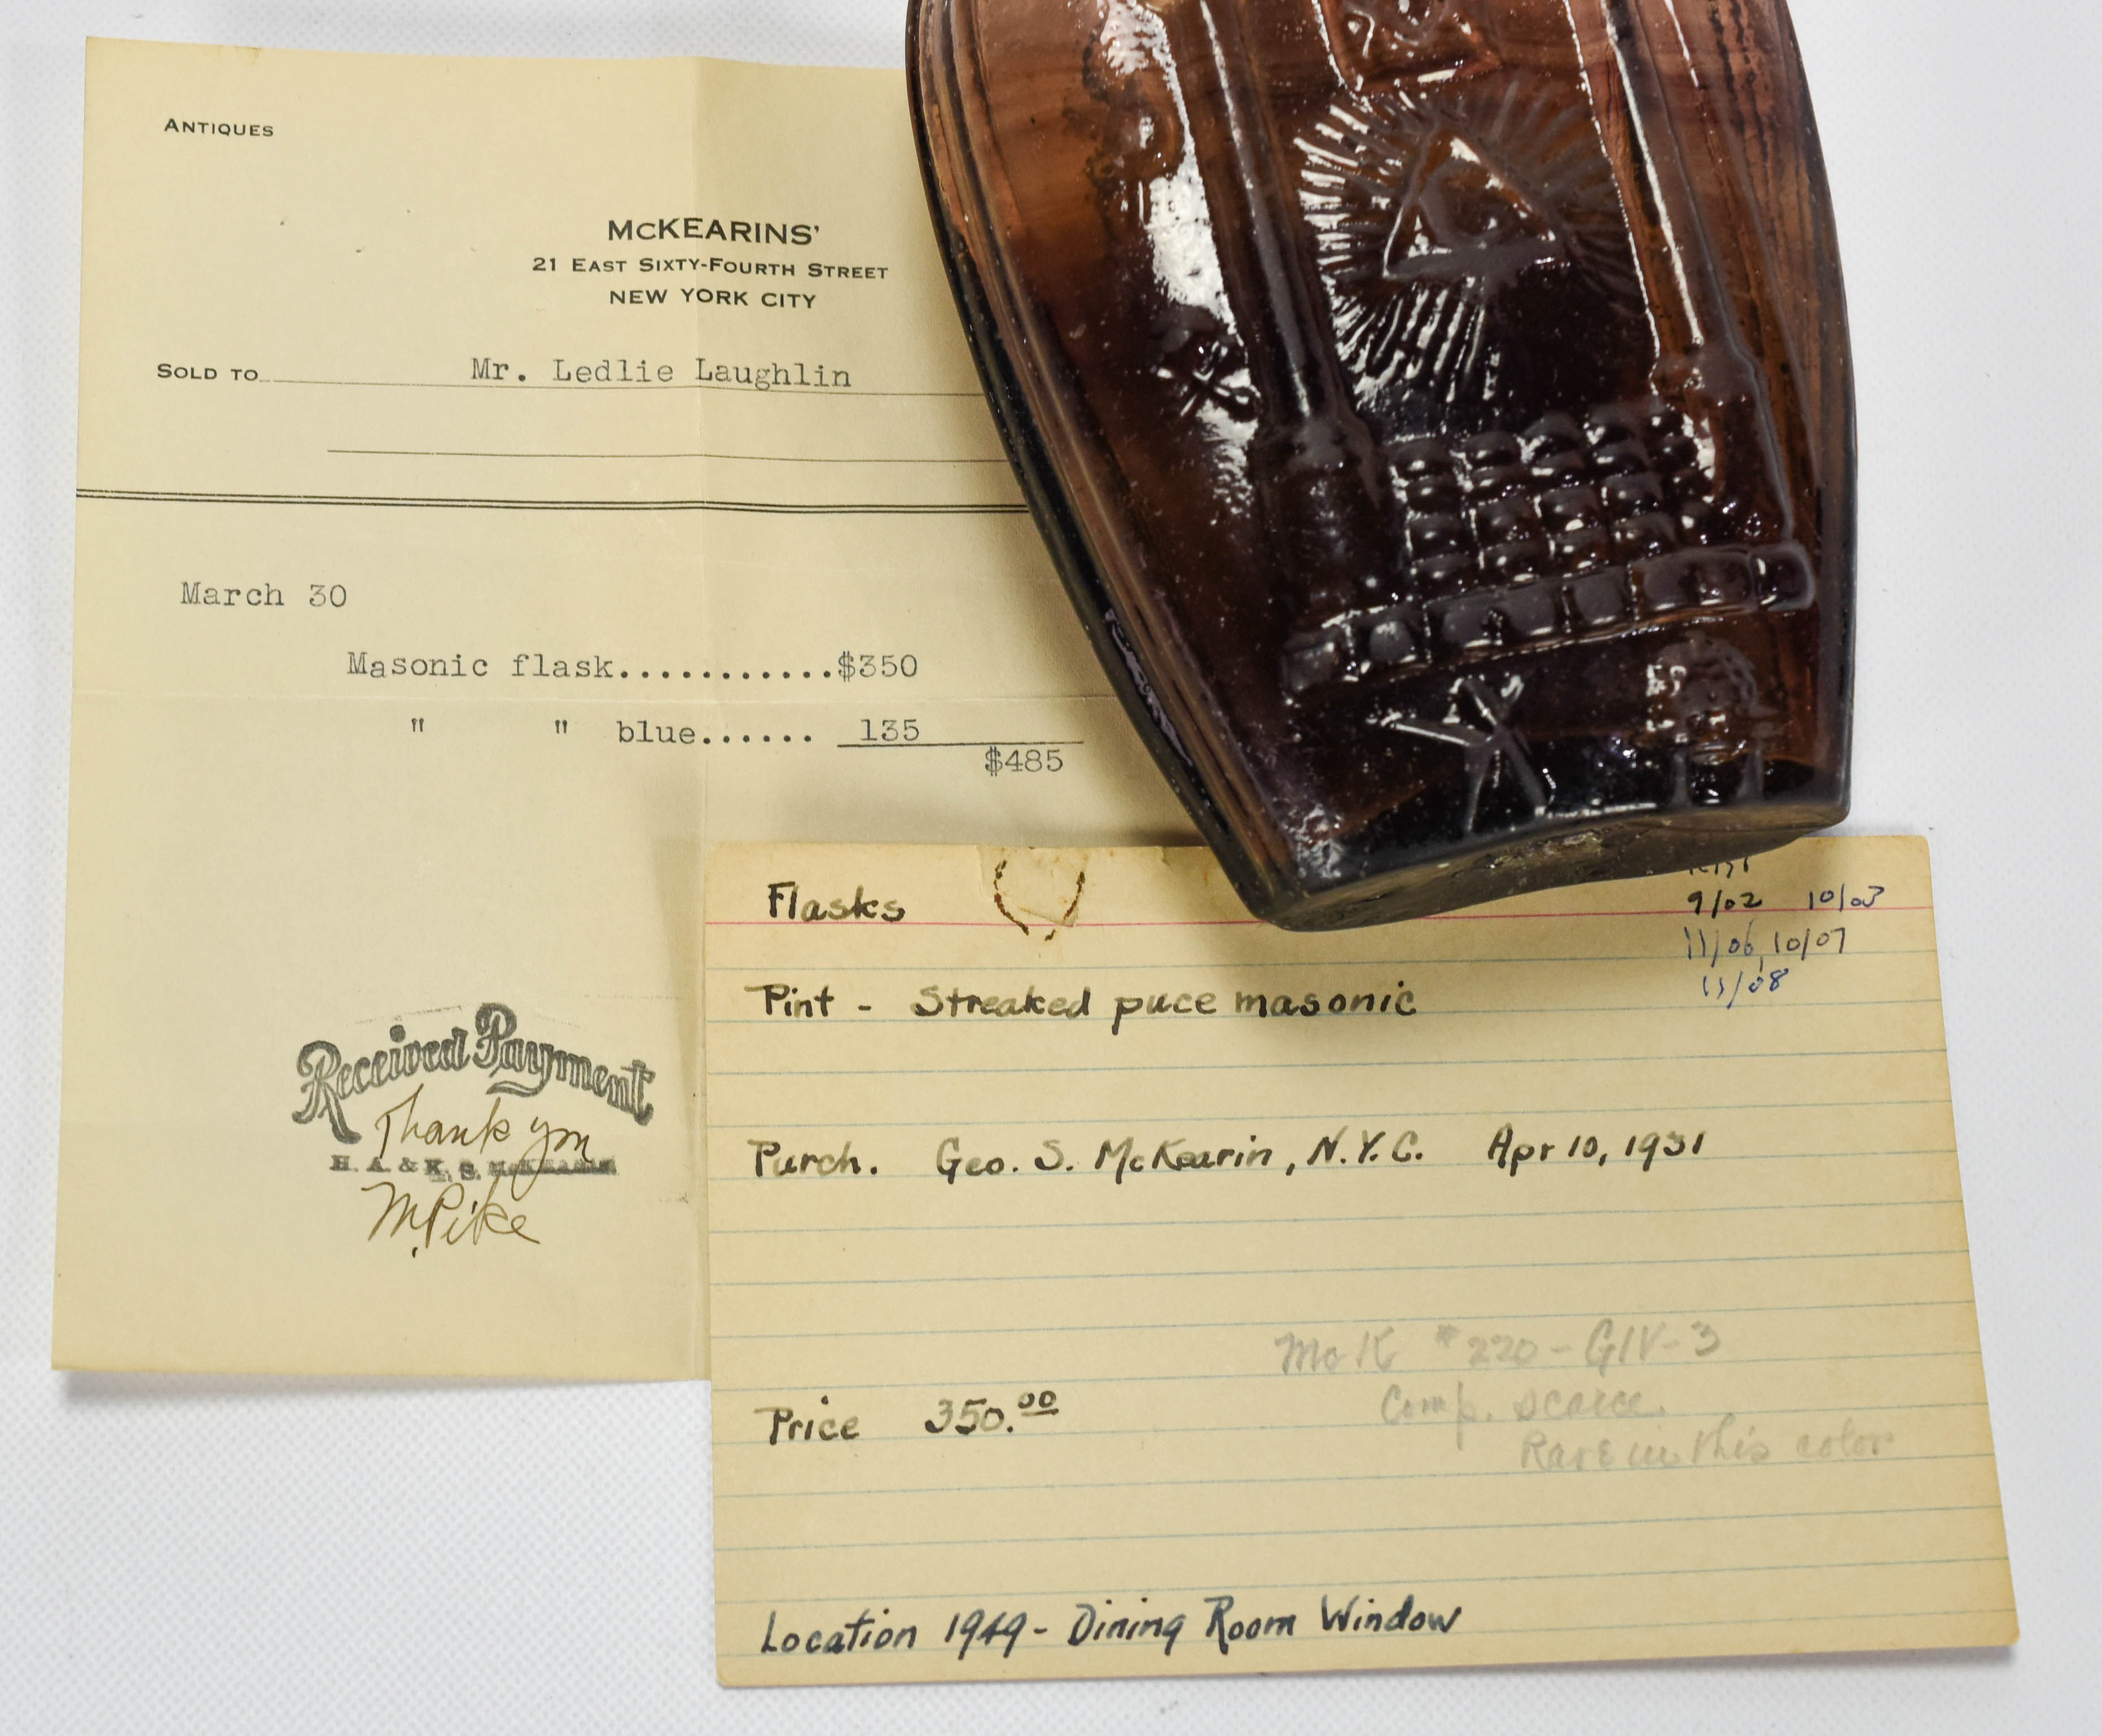 ANTIQUES
McKEARINS'
21 EAST SIXTY-FOURTH STREET
NEW YORK CITY
SOLD TO Mr. Ledlie Laughlin
March 30
Masonic flask............$350
" " blue...... 135
$485
Received Payment
Thank you
H. A. & K. S. McKEARIN
M. Pike
Flasks
9/02 10/03
11/06, 10/07
11/08
Pint - Streaked puce masonic
Purch. Geo. S. McKearin, N.Y.C. Apr 10, 1931
McK #220 - GIV-3
Comp. scarce.
Price 350.00
Rare in this color
Location 1949 - Dining Room Window